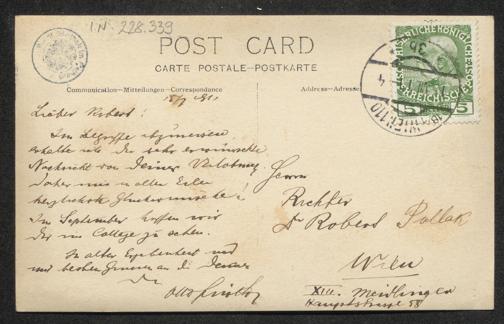 I.N. 228.339
POST CARD
CARTE POSTALE-POSTKARTE
Communication-Mitteilungen-Correspondance
Address-Adresse
15/7 1911
Lieber Robert!
Im Begriffe abzureisen
erhalte ich die sehr erwünschte
Nachricht von Deiner Verlobung.
Daher nur in aller Eile
herzlichste Glückwünsche!
Im September hoffen wir
Dich im College zu sehen.
In alter Ergebenheit und
mit besten Grüssen an die Deinen
Dein
Herrn
Richter
Dr Robert Pollak
Wien
XII. Meidling
Hauptstrasse 58
5
5